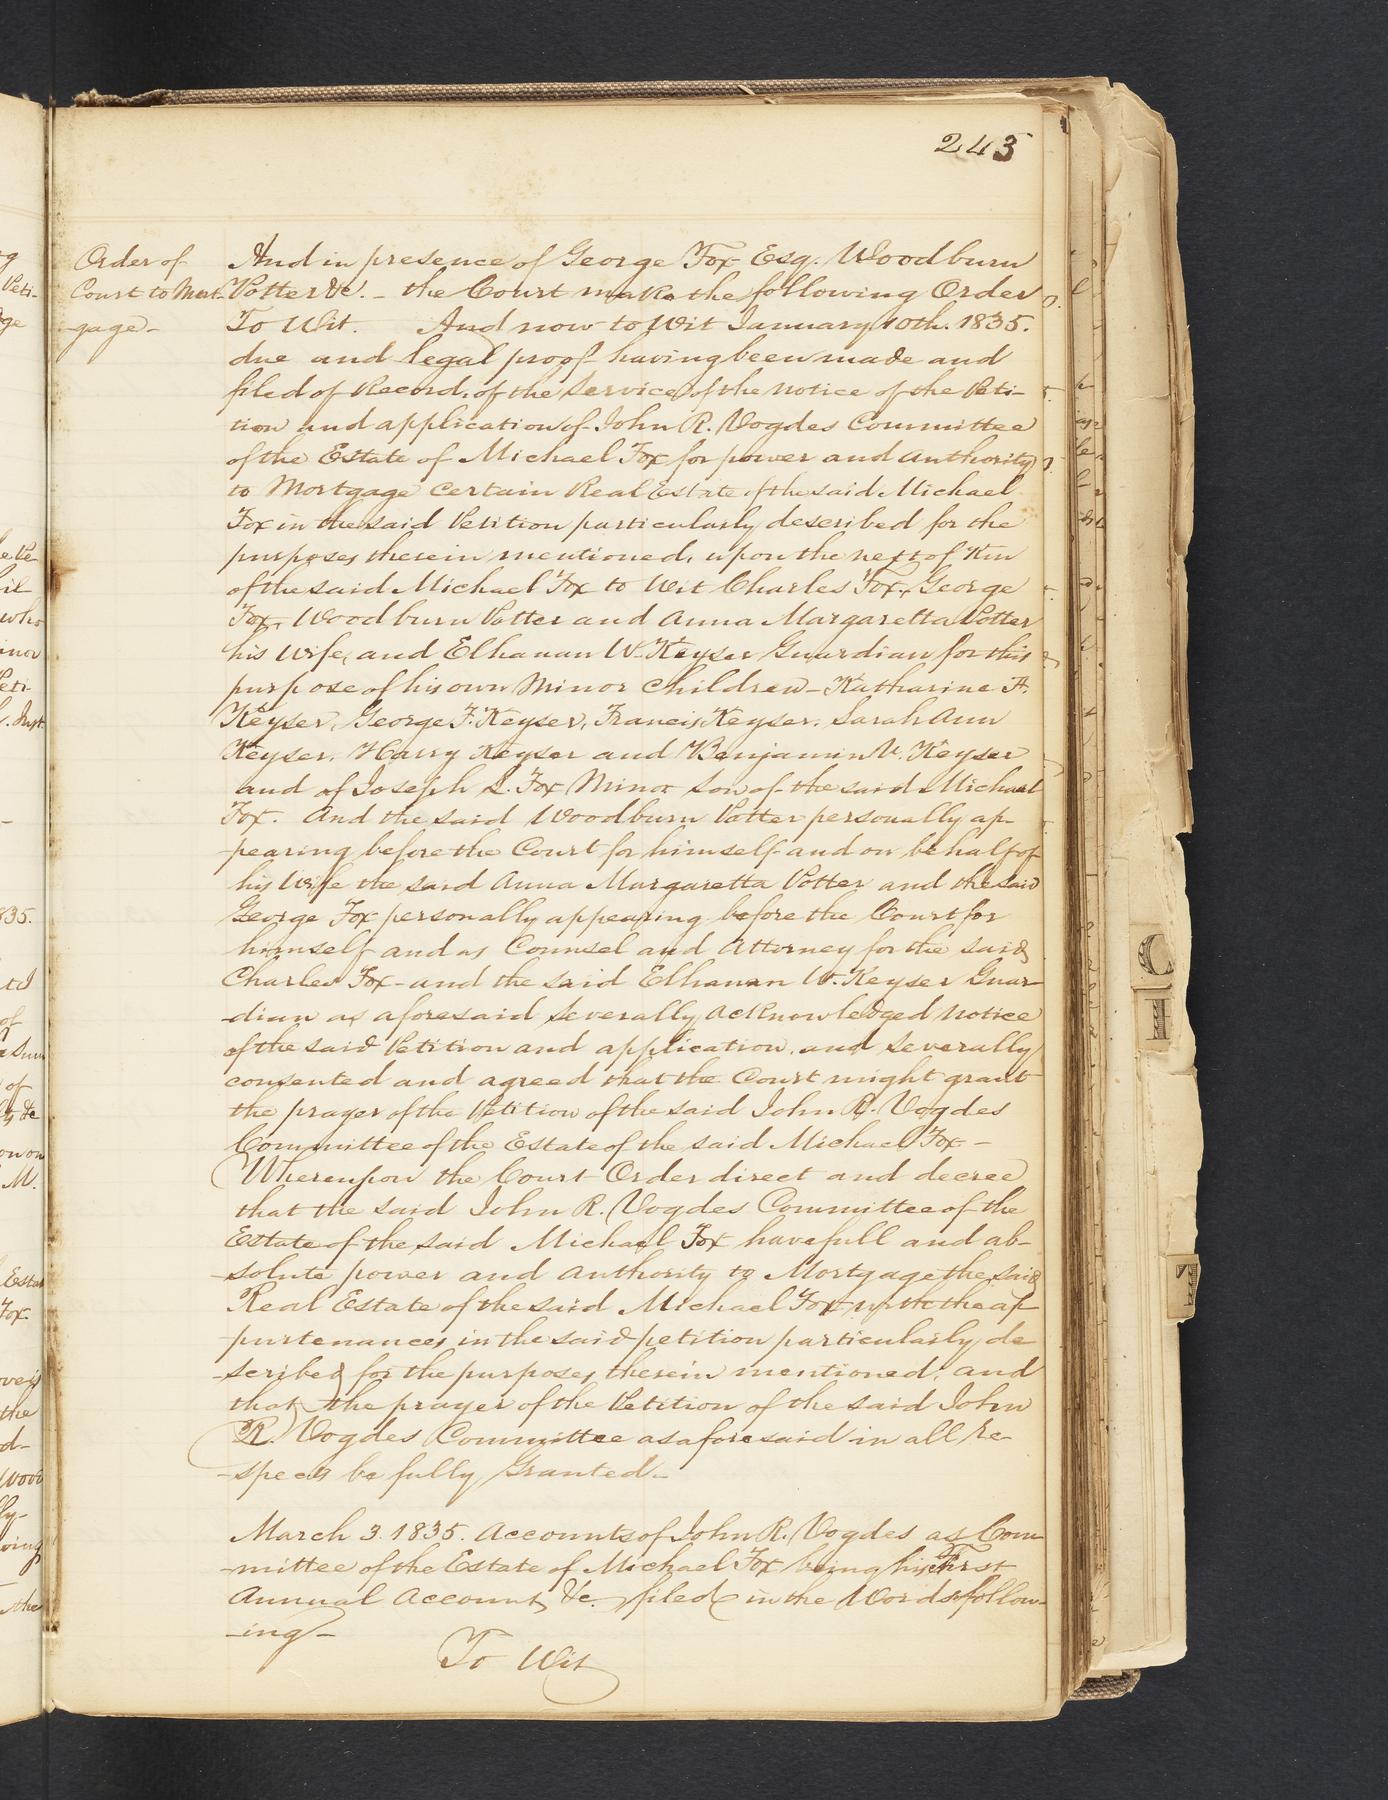 243
Order of
Court to Mort-
gage-
And in presence of George Fox Esq. Woodburn
Potter &c. - the Court make the following Order
To Wit. And now to Wit January 10th. 1835.
due and legal proof having been made and
filed of Record, of the service of the notice of the Peti-
tion and application of John R. Vogdes Committee
of the Estate of Michael Fox for power and authority
to Mortgage certain Real Estate of the said Michael
Fox in the said Petition particularly described for the
purposes therein mentioned, upon the next of Kin
of the said Michael Fox to Wit Charles Fox, George
Fox, Woodburn Potter and Anna Margaretta Potter
his Wife, and Elhanan W. Keyser Guardian for this
purpose of his own Minor children - Katharine A.
Keyser, George F. Keyser, Francis Keyser, Sarah Ann
Keyser, Harry Keyser and Benjamin V. Keyser
and of Joseph S. Fox Minor son of the said Michael
Fox. And the said Woodburn Potter personally ap-
pearing before the Court for himself and on behalf of
his Wife the said Anna Margaretta Potter and the said
George Fox personally appearing before the Court for
himself and as Counsel and Attorney for the said
Charles Fox - and the said Elhanan W. Keyser Guar-
dian as aforesaid severally acknowledged notice
of the said Petition and application, and severally
consented and agreed that the Court might grant
the prayer of the Petition of the said John R. Vogdes
Committee of the Estate of the said Michael Fox -
Whereupon the Court Order direct and decree
that the said John R. Vogdes Committee of the
Estate of the said Michael Fox have full and ab-
solute power and authority to Mortgage the said
Real Estate of the said Michael Fox with the ap
purtenances in the said petition particularly de
scribed for the purposes therein mentioned; and
that the prayer of the Petition of the said John
R. Vogdes Committee as aforesaid in all re-
spects be fully Granted -
March 3. 1835. Accounts of John R. Vogdes as Com-
mittee of the Estate of Michael Fox being his First
Annual Account, &c. filed in the Words follow-
ing -
To Wit